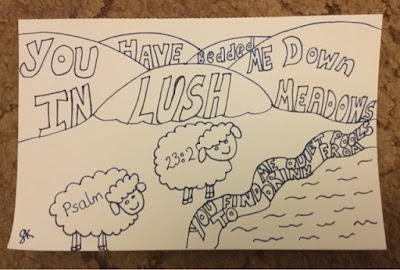 YOU HAVE Bedded ME Down
IN LUSH MEADOWS
Psalm 23:2
YOU FIND ME QUIET POOLS
TO DRINK FROM